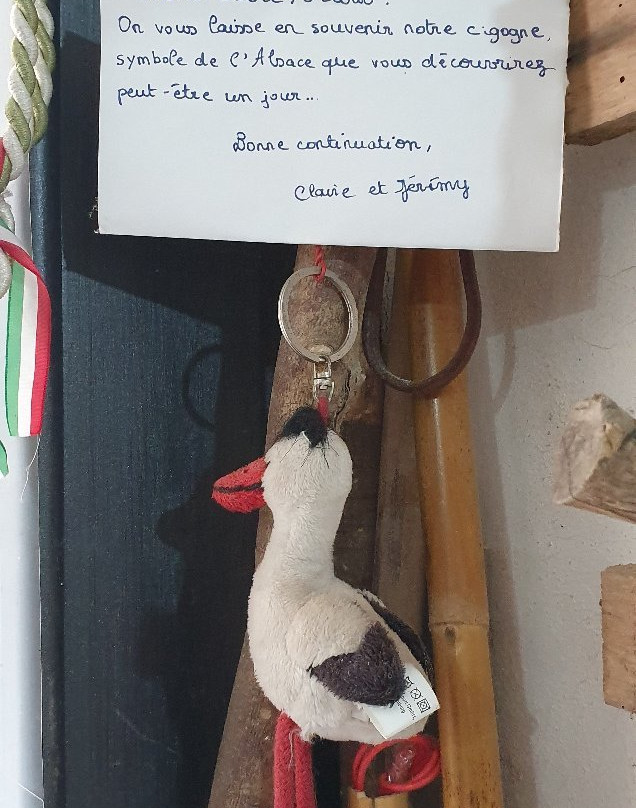 On vous laisse en souvenir notre cigogne,
symbole de l'Alsace que vous découvrirez
peut-être un jour...
Bonne continuation,
Claire et Jérémy